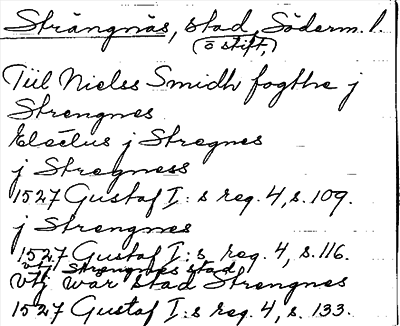 Strängnäs, stad, Söderm. l.
(o stift,)
Till Nielss Smidh fogthe j
Strengnes
Electus j Stregnes
j Stregness
1527 Gustaf I:s reg. 4, s. 109.
j Strengnes
1527 Gustaf I:s reg. 4, s. 116.
vtj Strengnes stad
vtj wår stad Strengnes
1527 Gustaf I:s reg. 4, s. 133.